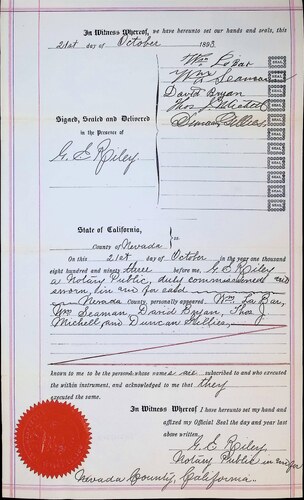 In Witness Whereof, we have hereunto set our hands and seals, this
21st day of October 1893
Wm LaBar SEAL
Wm Seaman SEAL
David Bryan SEAL
Thos J Michell SEAL
Duncan Gillies SEAL
Signed, Sealed and Delivered
in the Presence of
G. E. Riley
State of California, } ss
County of Nevada
On this 21st day of October in the year one thousand
eight hundred and ninety three before me, G. E. Riley
a Notary Public, duly commissioned and
sworn, in and for said
Nevada County, personally appeared Wm La Bar,
Wm Seaman David Bryan, Thos J
Michell, and Duncan Gillies,
known to me to be the persons whose names are subscribed to and who executed
the within instrument, and acknowledged to me that they
executed the same.
In Witness Whereof I have hereunto set my hand and
affixed my Official Seal the day and year last
above written.
G. E. Riley
Notary Public in and for
Nevada County, California.